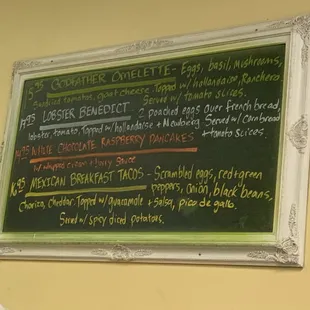 15.95 GODFATHER OMELETTE - Eggs, basil, mushrooms,
Sundried tomatos, goat cheese. Topped w/ hollandaise, Ranchero.
Served w/ tomato slices.
19.95 LOBSTER BENEDICT - 2 poached eggs over french bread,
lobster, tomato, Topped w/ hollandaise + Served w/ cornbread
+ tomato slices.
14.95 WHITE CHOCOLATE RASPBERRY PANCAKES
w/ whipped cream + berry sauce
16.95 MEXICAN BREAKFAST TACOS - Scrambled eggs, red + green
peppers, onion, black beans,
Chorizo, cheddar. Topped w/ guacamole + salsa, pico de gallo.
Served w/ spicy diced potatoes.